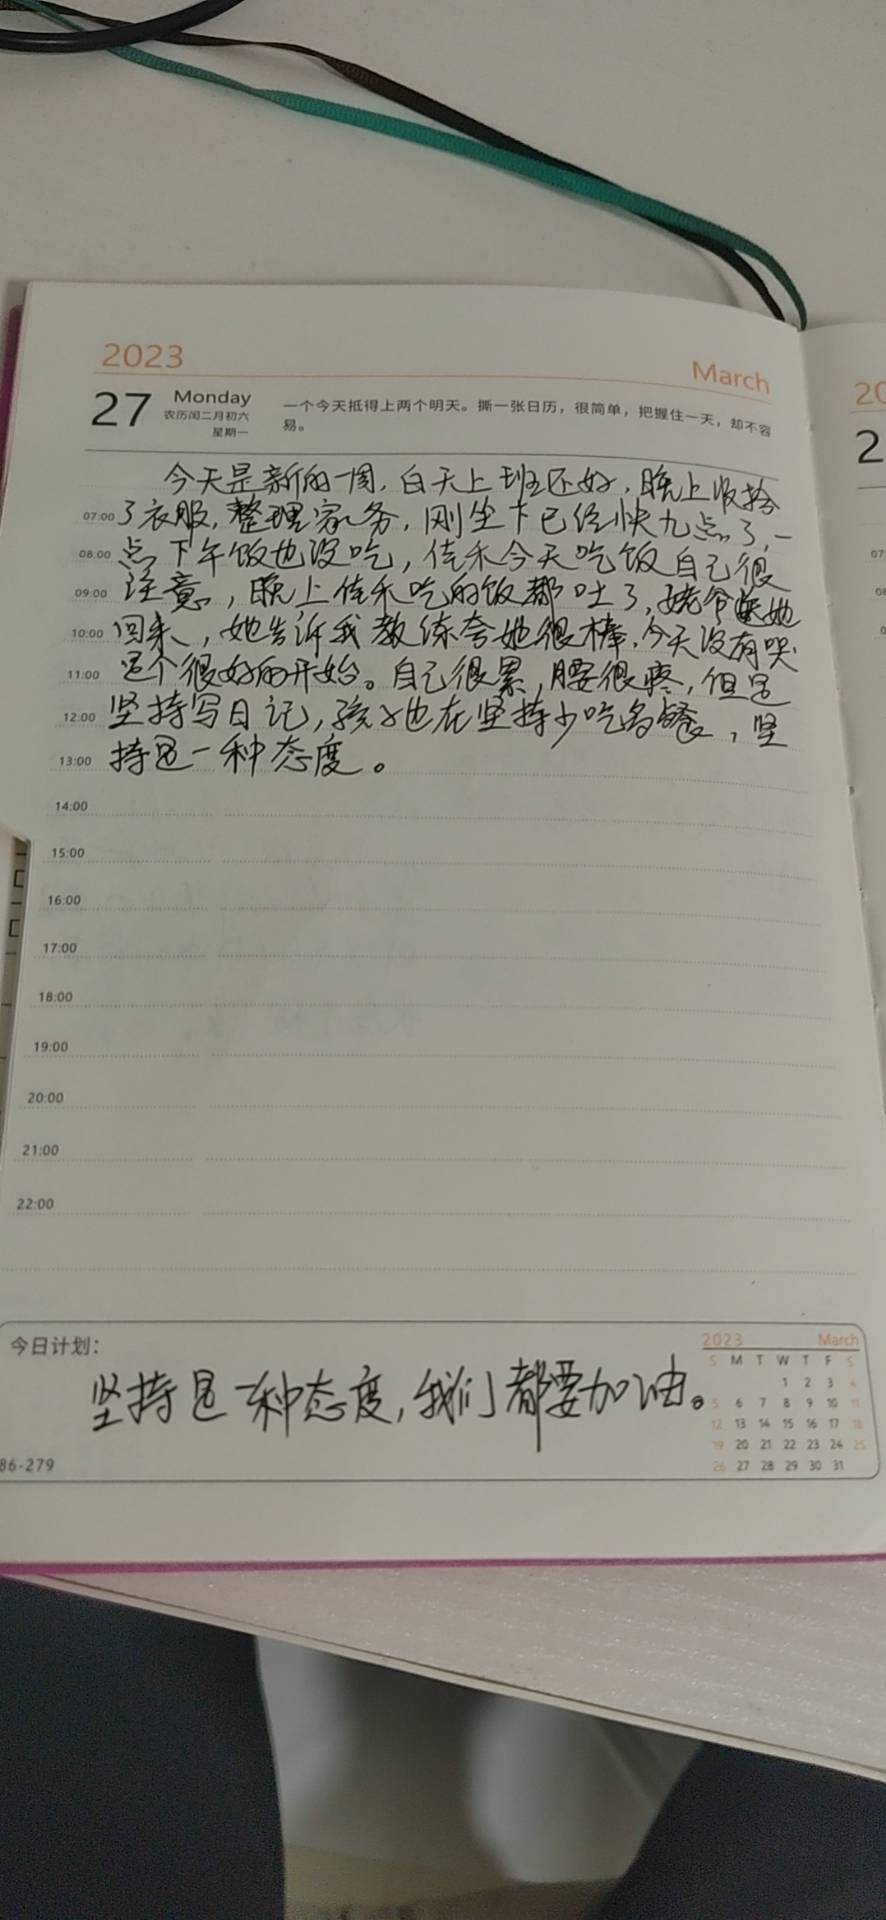 2023
March
27
Monday
农历闰二月初六
星期一
一个今天抵得上两个明天。撕一张日历，很简单，把握住一天，却不容
易。
今天是新的一周，白天上班还好，晚上收拾
07:00 了衣服，整理家务，刚坐下已经快九点了，一
08:00 点下午饭也没吃，佳禾今天吃饭自己很
09:00 注意，晚上佳禾吃的饭都吐了，姥爷送她
10:00 回来，她告诉我教练夸她很棒，今天没有哭
11:00 是个很好的开始。自己很累，腰很疼，但是
12:00 坚持写日记，孩子也在坚持少吃多餐，坚
13:00 持是一种态度。
14:00
15:00
16:00
17:00
18:00
19:00
20:00
21:00
22:00
今日计划：
坚持是一种态度，我们都要加油。
86-279
2023 March
S M T W T F S
1 2 3 4
5 6 7 8 9 10 11
12 13 14 15 16 17 18
19 20 21 22 23 24 25
26 27 28 29 30 31
20
2
07